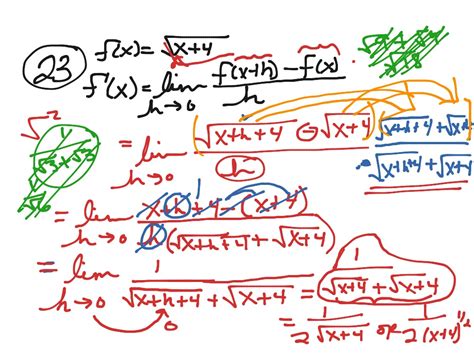 23 f(x) = √x+4
f'(x) = lim h→0 f(x+h) - f(x) / h
= lim h→0 √x+h+4 - √x+4 / h · √x+h+4 + √x+4 / √x+h+4 + √x+4
= lim h→0 x+h+4-(x+4) / h(√x+h+4 + √x+4)
= lim h→0 1 / √x+h+4 + √x+4 = 1 / √x+4 + √x+4
= 1 / 2√x+4 or 1 / 2(x+4)^1/2